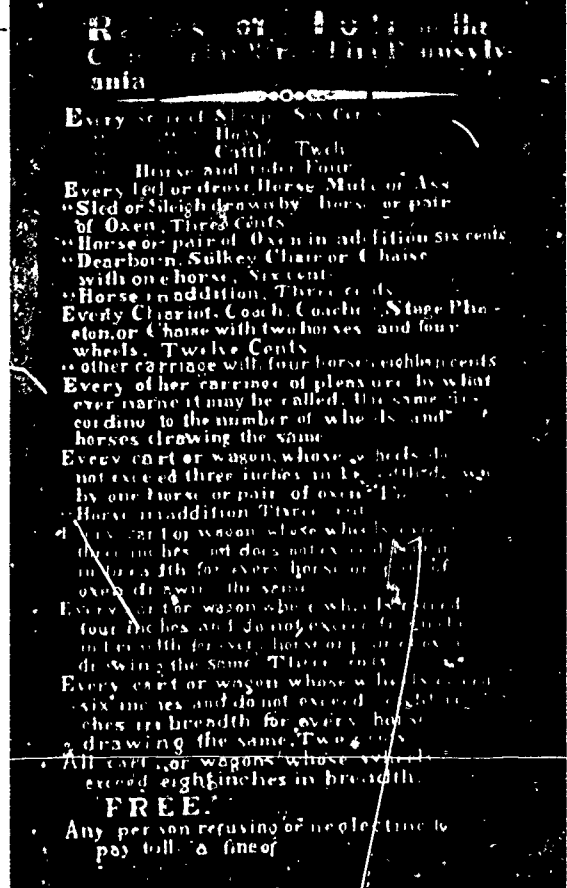 the
Pennsylv-
ania
Every score of Sheep Six Cents
" " Hogs
" " Cattle Twelve
Horse and rider Four
Every led or drove Horse Mule or Ass
" Sled or Sleigh drawn by horse or pair
of Oxen, Three Cents
" Horse or pair of Oxen in addition six cents
" Dearborn, Sulkey Chair or Chaise
with one horse, Six cents
" Horse in addition, Three cents
Every Chariot, Coach, Coachee, Stage Pha-
eton, or Chaise with two horses and four
wheels, Twelve Cents
" other carriage with four horses eighteen cents
Every other carriage of pleasure by what
ever name it may be called, the same ac-
cording to the number of wheels and
horses drawing the same
Every cart or wagon, whose wheels do
not exceed three inches in
by one horse or pair of oxen
" Horse in addition Three
cart or wagon whose wheels exceed
three inches and does not exceed
in breadth for every horse or of
oxen drawing the same
Every cart or wagon whose wheels exceed
four inches and do not exceed
in breadth for every horse or pair of oxen
drawing the same Three cents
Every cart or wagon whose wheels exceed
six inches and do not exceed eight in-
ches in breadth for every horse
drawing the same, Two cents
All carts or wagons whose wheels
exceed eight inches in breadth.
FREE.
Any person refusing or neglecting to
pay toll a fine of